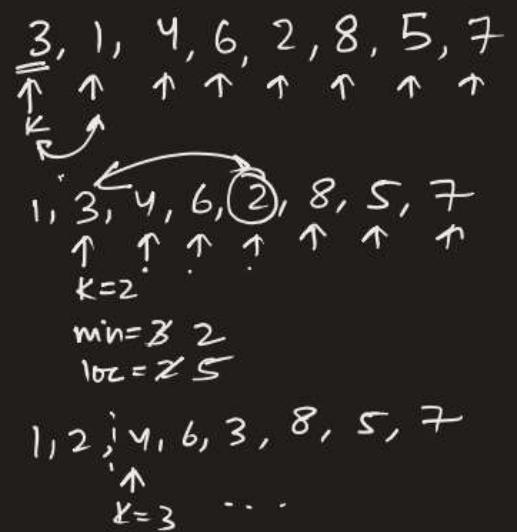 3, 1, 4, 6, 2, 8, 5, 7
K
1, 3, 4, 6, 2, 8, 5, 7
K=2
min=3 2
loc=2 5
1, 2, 4, 6, 3, 8, 5, 7
K=3 ...